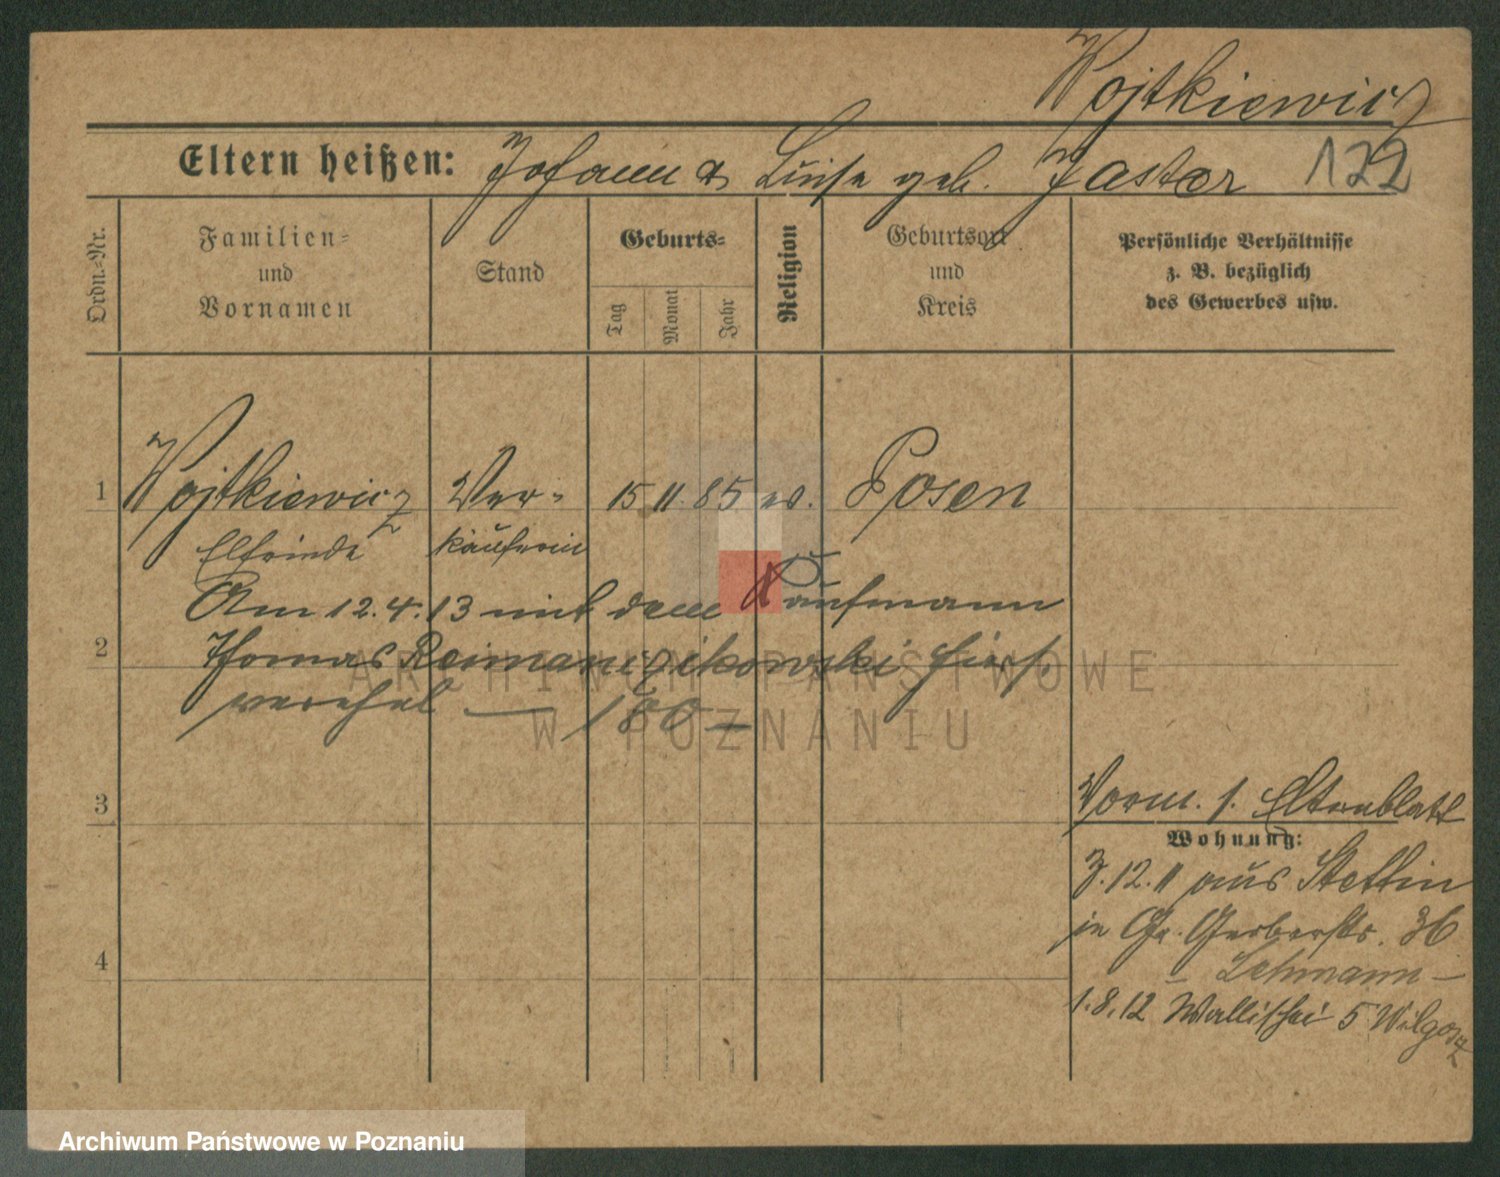 Wojtkiewicz
Eltern heißen: Johann & Luise geb. Jaster 122
Ordn.-Nr.
Familien-
und
Vornamen
Stand
Geburts-
Tag
Monat
Jahr
Religion
Geburtsort
und
Kreis
Persönliche Verhältnisse
z. B. bezüglich
des Gewerbes usw.
1 Wojtkiewicz Ver- 15 11. 85 ev. Posen
Elfriede käuferin
Am 12.4.13 mit dem Kaufmann
2 Thomas hier
verehel. — 180 —
ARCHIWUM PAŃSTWOWE
W POZNANIU
3
Vorm. s. Elternblatt
Wohnung:
3.12.11 aus Stettin
in Gr. Gerberstr. 36
4
— Lehmann —
1.8.12 Wallischei 5 Wilgosz
Archiwum Państwowe w Poznaniu